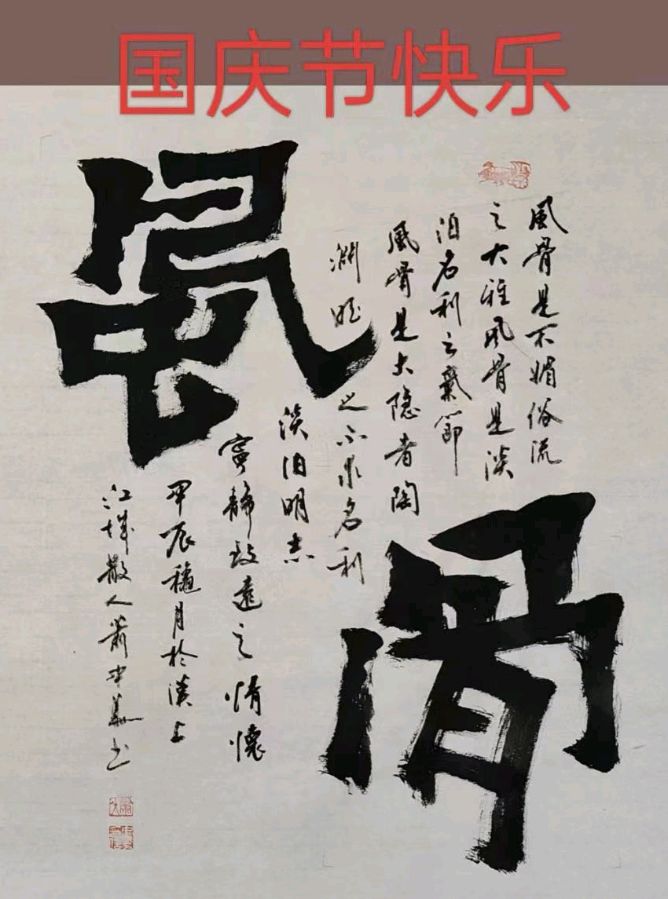 国庆节快乐
風
骨
風骨是不媚俗流
之大雅風骨是淡
泊名利之氣節
風骨是大隐者陶
渊明之不求名利
淡泊明志
寧靜致遠之情懷
甲辰穗月於漢上
江城散人萧华书